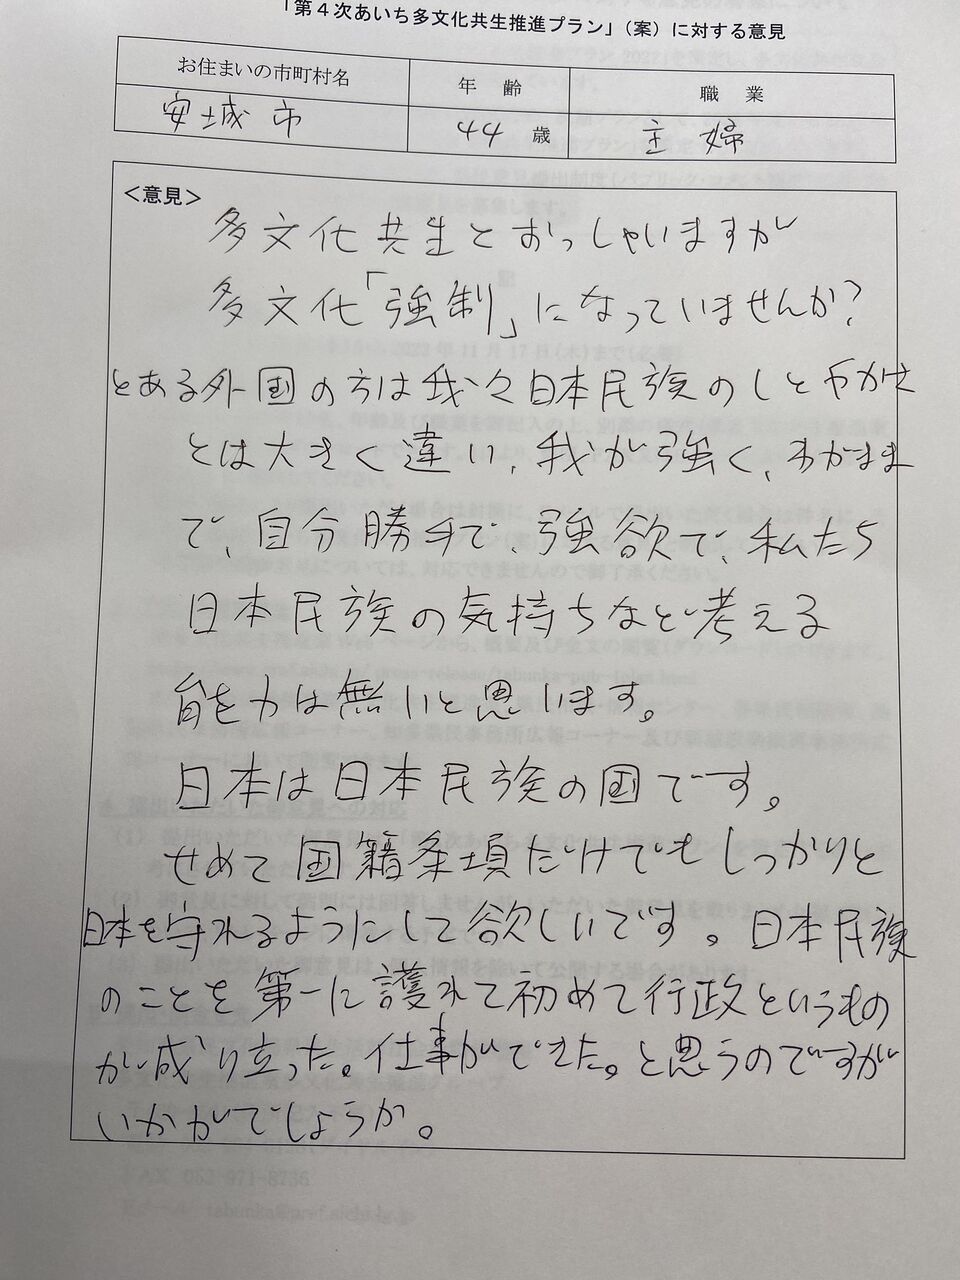 「第4次あいち多文化共生推進プラン」(案)に対する意見
お住まいの市町村名 年 齢 職 業
安城市 44 歳 主婦
<意見>
多文化共生とおっしゃいますが
多文化「強制」になっていませんか?
とある外国の方は我々日本民族のしとやかさ
とは大きく違い、我が強く、わがまま
で、自分勝手で、強欲で、私たち
日本民族の気持ちなど考える
能力は無いと思います。
日本は日本民族の国です。
せめて国籍条項だけでもしっかりと
日本を守れるようにして欲しいです。日本民族
のことを第一に護れて初めて行政というもの
が成り立った。仕事ができた。と思うのですが
いかがでしょうか。